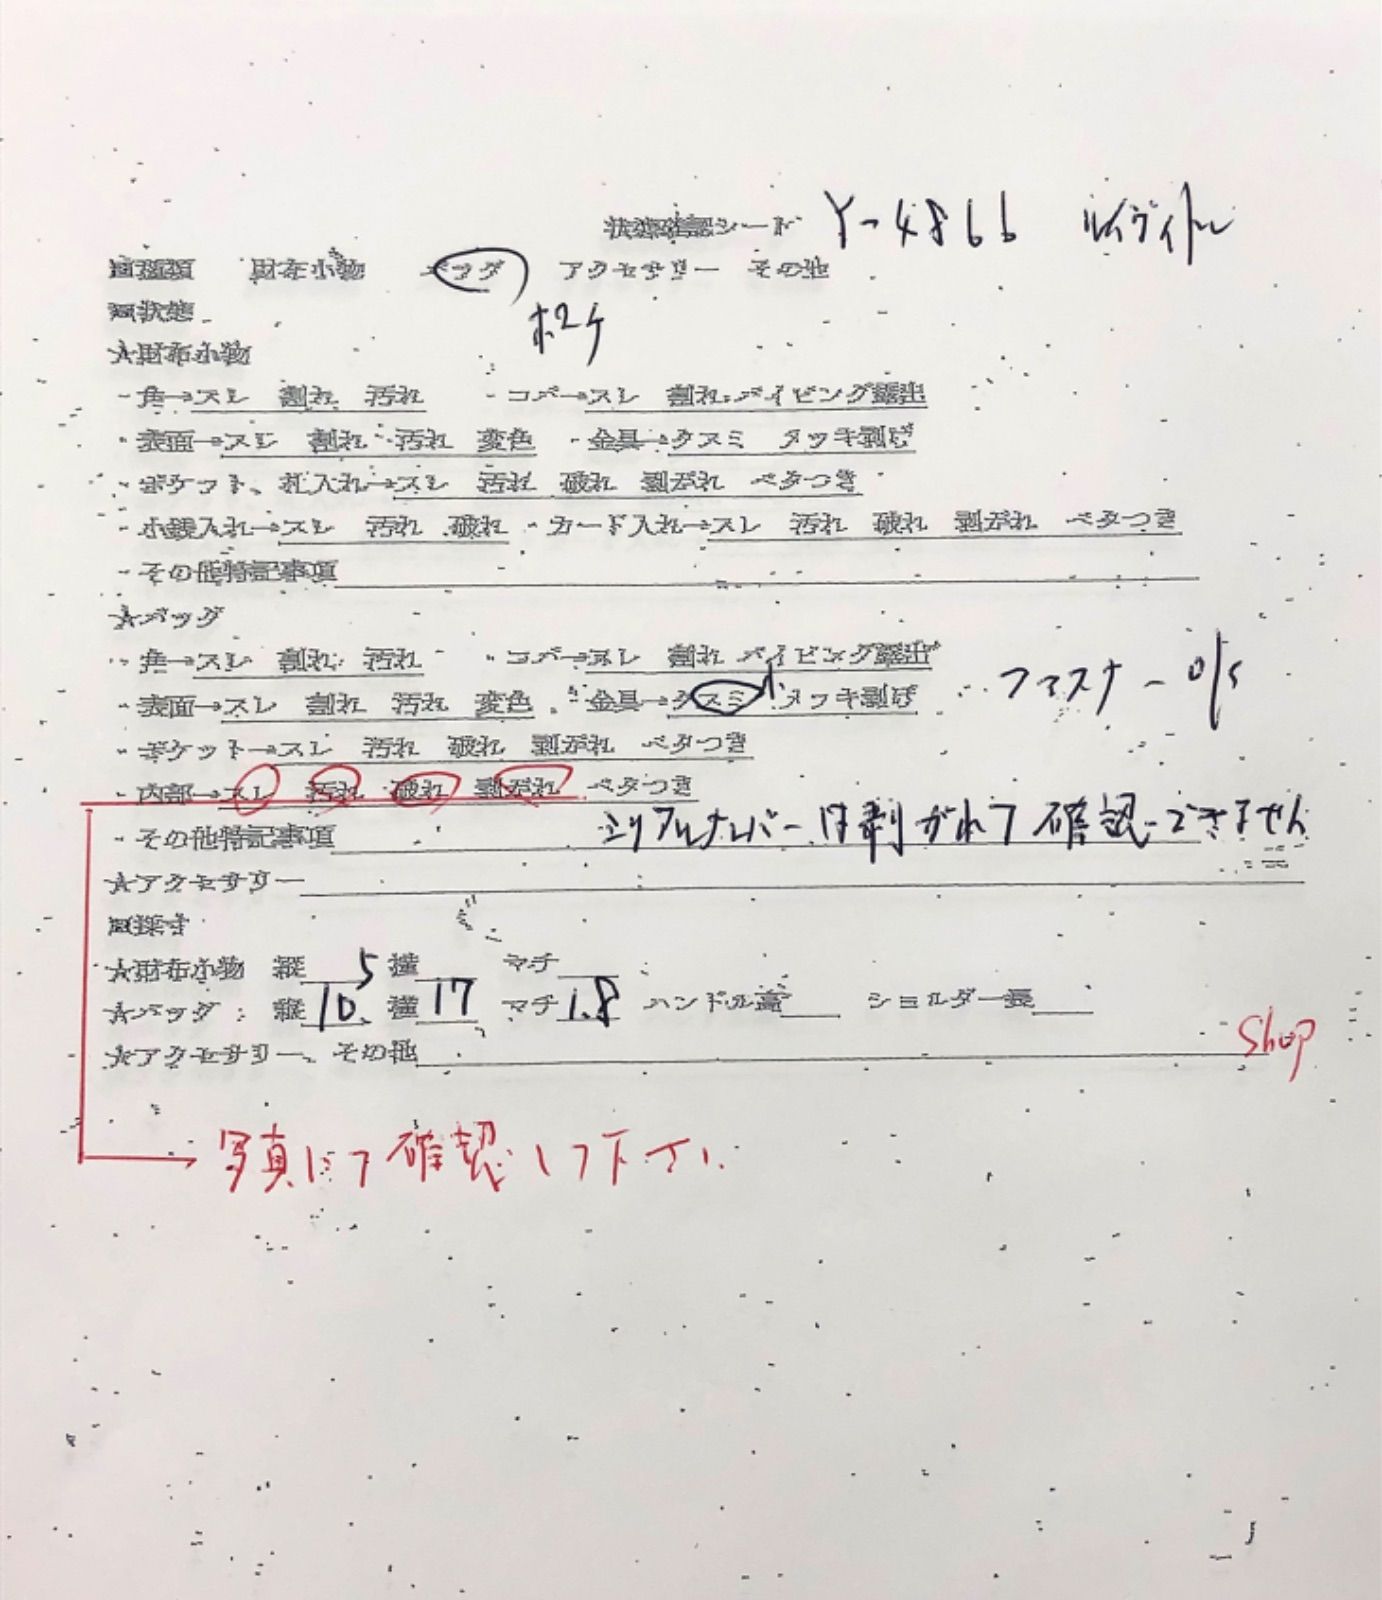 状態確認シート Y-4866 ルイヴィトン
■種類 財布小物 バッグ アクセサリー その他
■状態 ポーチ
★財布小物
・角→スレ 割れ 汚れ ・コバ→スレ 割れ パイピング露出
・表面→スレ 割れ 汚れ 変色 ・金具→クスミ メッキ剥げ
・ポケット、札入れ→スレ 汚れ 破れ 剥がれ ベタつき
・小銭入れ→スレ 汚れ 破れ ・カード入れ→スレ 汚れ 破れ 剥がれ ベタつき
・その他特記事項
★バッグ
・角→スレ 割れ 汚れ ・コバ→スレ 割れ パイピング露出
・表面→スレ 割れ 汚れ 変色 ・金具→クスミ 小 メッキ剥げ ファスナー
・ポケット→スレ 汚れ 破れ 剥がれ ベタつき
・内部→スレ 汚れ 破れ 剥がれ ベタつき
・その他特記事項 シリアルナンバーは剥がれて確認できません
★アクセサリー
■採寸
★財布小物 縦 横 マチ
★バッグ 縦 10.5 横 17 マチ 1.8 ハンドル高 ショルダー長
★アクセサリー、その他 Shop
写真にて確認して下さい